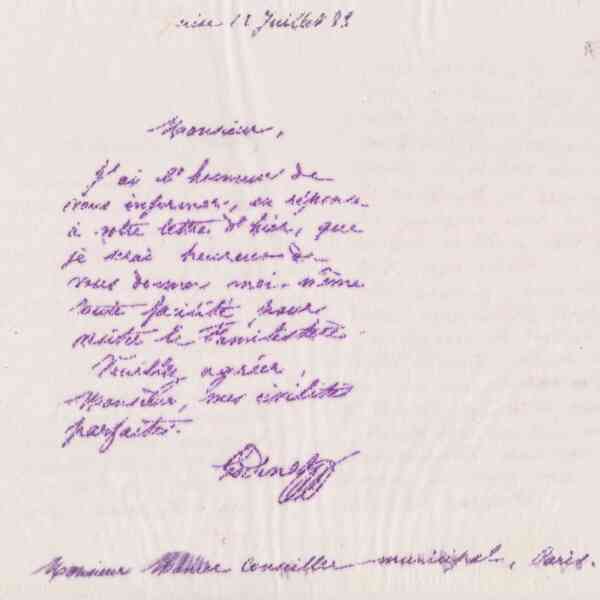 Guise 12 Juillet 89
Monsieur,
J'ai l'honneur de
vous informer, en réponse
à votre lettre d'hier, que
je serai heureux de
vous donner moi-même
toute facilité pour
visiter le Familistère.
Veuillez agréer,
Monsieur, mes civilités
parfaites.
Monsieur conseiller municipal, Paris.